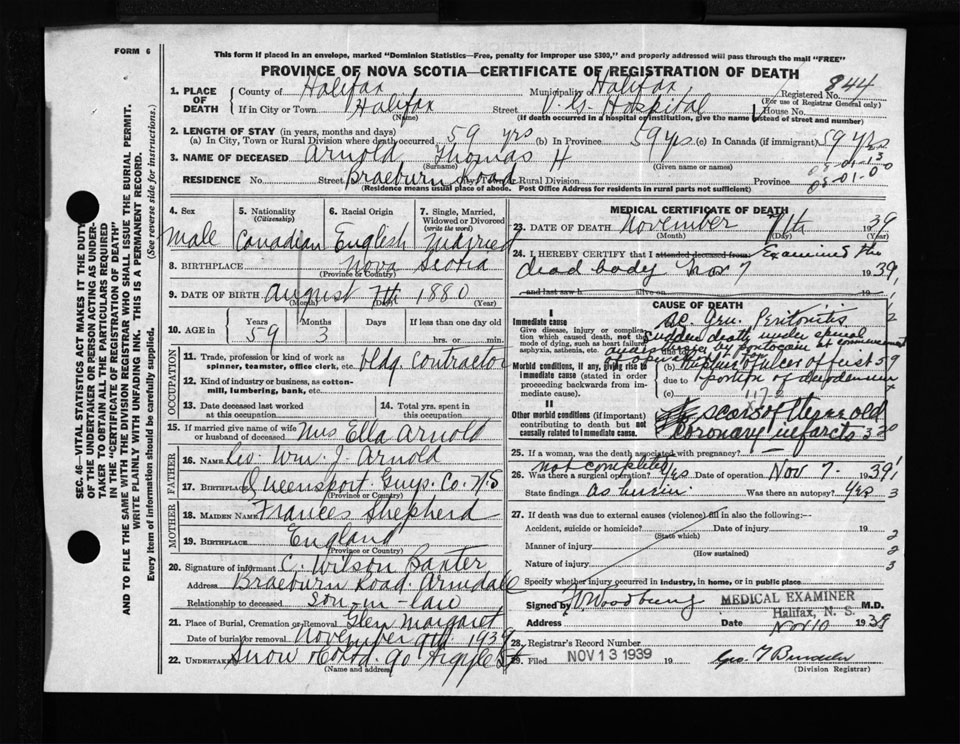 FORM 6
This form if placed in an envelope, marked "Dominion Statistics—Free, penalty for improper use $300," and properly addressed will pass through the mail "FREE"
PROVINCE OF NOVA SCOTIA—CERTIFICATE OF REGISTRATION OF DEATH
SEC. 46—VITAL STATISTICS ACT MAKES IT THE DUTY OF THE UNDERTAKER OR PERSON ACTING AS UNDERTAKER TO OBTAIN ALL THE PARTICULARS REQUIRED IN THE "CERTIFICATE OF REGISTRATION OF DEATH" AND TO FILE THE SAME WITH THE DIVISION REGISTRAR WHO SHALL ISSUE THE BURIAL PERMIT.
WRITE PLAINLY WITH UNFADING INK. THIS IS A PERMANENT RECORD.
Every item of information should be carefully supplied. (See reverse side for instructions.)
1. PLACE OF DEATH
County of Halifax Municipality of Halifax Registered No. 844
(For use of Registrar General only)
If in City or Town Halifax Street V. G. Hospital House No.
(Name) (If death occurred in a hospital or institution, give the name instead of street and number)
2. LENGTH OF STAY (in years, months and days)
(a) In City, Town or Rural Division where death occurred 59 yrs (b) In Province 59 yrs (c) In Canada (if immigrant) 59 yrs
3. NAME OF DECEASED Arnold Thomas H
(Surname) (Given name or names)
RESIDENCE No. Street Braeburn Road City, Town or Rural Division Province 03-01-00
(Residence means usual place of abode. Post Office Address for residents in rural parts not sufficient)
4. Sex Male
5. Nationality (Citizenship) Canadian
6. Racial Origin English
7. Single, Married, Widowed or Divorced (write the word) Married
8. BIRTHPLACE Nova Scotia
(Province or Country)
9. DATE OF BIRTH August 7th 1880
(Month) (Day) (Year)
10. AGE in Years Months Days If less than one day old
59 3 hrs. or min.
OCCUPATION
11. Trade, profession or kind of work as spinner, teamster, office clerk, etc. Bldg. Contractor
12. Kind of industry or business, as cotton-mill, lumbering, bank, etc.
13. Date deceased last worked at this occupation
14. Total yrs. spent in this occupation
15. If married give name of wife or husband of deceased Mrs Ella Arnold
FATHER
16. Name Geo. Wm. J. Arnold
17. Birthplace Queensport Guys. Co. N.S
(Province or Country)
MOTHER
18. Maiden Name Frances Shepherd
19. Birthplace England
(Province or Country)
20. Signature of informant C. Wilson Baxter
Address Braeburn Road. Armdale
Relationship to deceased Son-in-law
21. Place of Burial, Cremation or Removal Glen Margaret
Date of burial or removal November 9th 1939
22. Undertaker Snow & Co Ltd. 90 Argyle St
(Name and address)
MEDICAL CERTIFICATE OF DEATH
23. DATE OF DEATH November 7th 1939
(Month) (Day) (Year)
24. I HEREBY CERTIFY that I attended deceased from Examined the
dead body Nov 7 1939,
and last saw h alive on 19
CAUSE OF DEATH
I
Immediate cause
Give disease, injury or complication which caused death, not the mode of dying, such as heart failure, asphyxia, asthenia, etc.
Ac. Gen. Peritonitis
Sudden death under spinal
Morbid conditions, if any, giving rise to immediate cause (stated in order proceeding backwards from immediate cause).
(b) Rupture of ulcer of first 59
due to portion of duodenum
(c) 117-2
II
Other morbid conditions (if important) contributing to death but not causally related to immediate cause.
scars of old
coronary infarcts
25. If a woman, was the death associated with pregnancy?
not completed
26. Was there a surgical operation? Yes Date of operation Nov 7- 1939
State findings as herein Was there an autopsy? Yes
27. If death was due to external causes (violence) fill in also the following:—
Accident, suicide or homicide? Date of injury 19
(State which)
Manner of injury
(How sustained)
Nature of injury
Specify whether injury occurred in industry, in home, or in public place
Signed by Woodbury MEDICAL EXAMINER M.D.
Halifax, N. S.
Address Date Nov 10 1939
28. Registrar's Record Number
29. Filed NOV 13 1939 19
(Division Registrar)